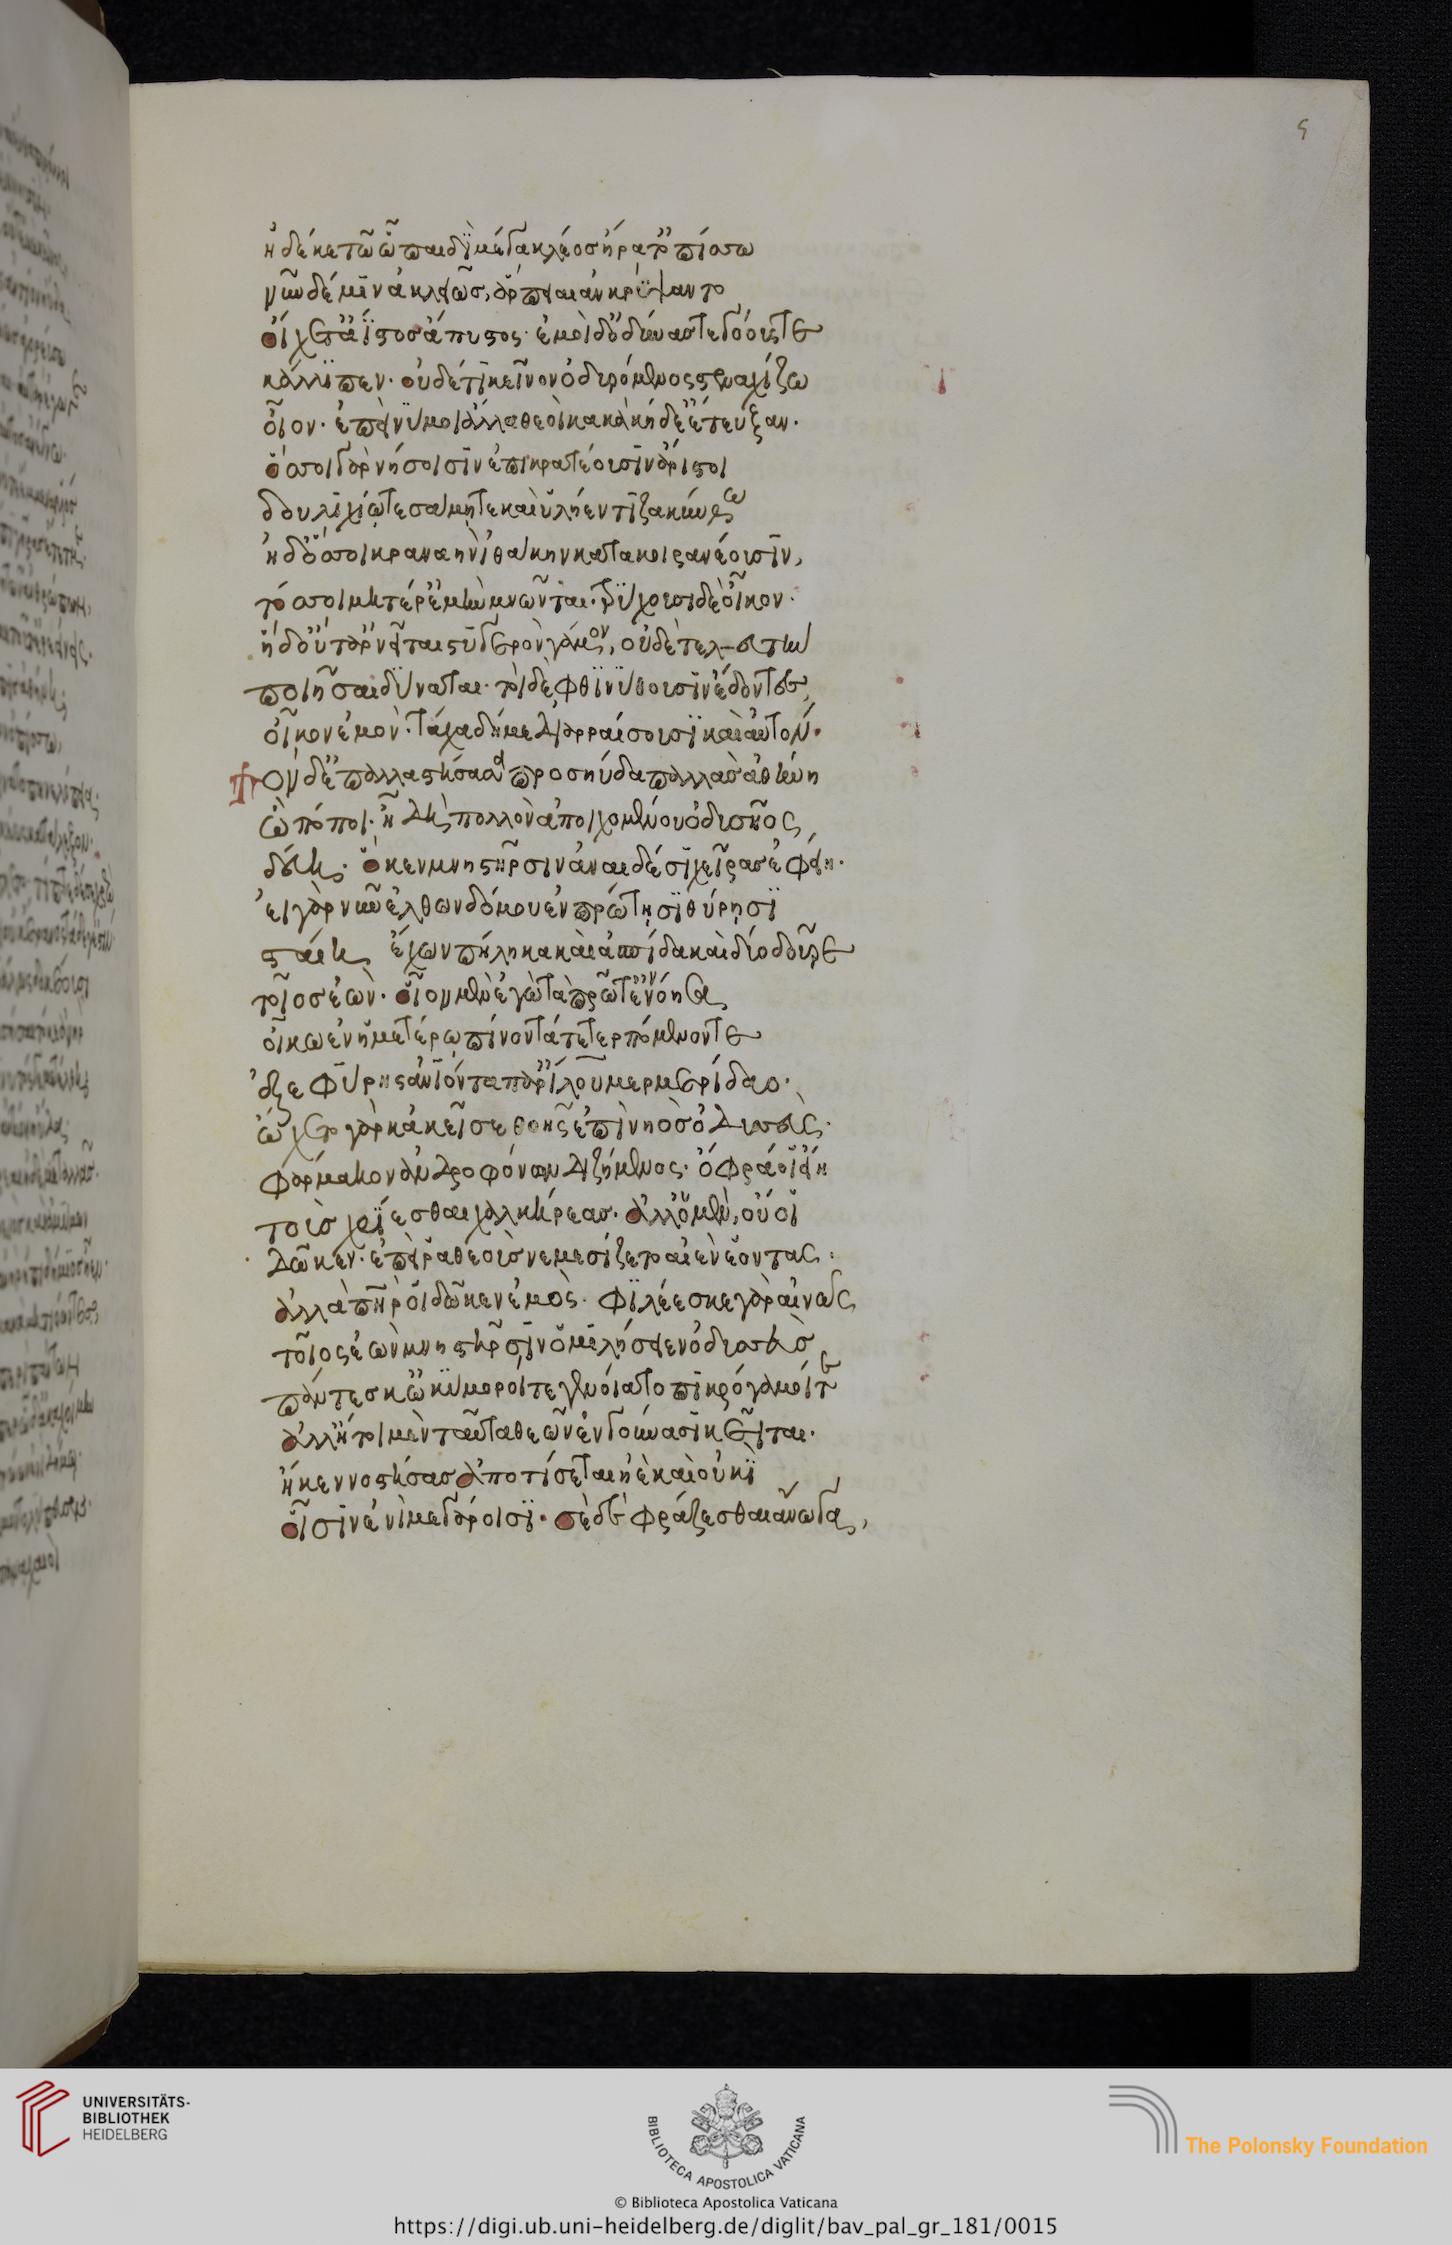 5
ἠδέ κε τῶ ᾧ παιδὶ μέγα κλέος ἤρατ' ὀπίσσω
νῦν δέ μιν ἀκλειῶς, ἅρπυιαι ἀνηρείψαντο
οἴχετ' ἄϊστος ἄπυστος· ἐμοὶ δ' ὀδύνας τε γόους τε
κάλλιπεν· οὐδέ τι κεῖνον ὀδυρόμενος στεναχίζω
οἶον· ἐπεί νύ μοι ἄλλα θεοὶ κακὰ κήδε' ἔτευξαν·
ὅσσοι γὰρ νήσοισιν ἐπικρατέουσιν ἄριστοι
δουλιχίῳ τε σάμῃ τε καὶ ὑλήεντι ζακύνθω
ἠδ' ὅσσοι κραναὴν ἰθάκην κατακοιρανέουσιν,
τόσσοι μητέρ' ἐμὴν μνῶνται· τρύχουσι δὲ οἶκον·
ἡ δ' οὔτ' ἀρνεῖται στυγερὸν γάμον, οὐδὲ τελευτὴν
ποιῆσαι δύναται· τοὶ δὲ φθινύθουσιν ἔδοντες
οἶκον ἐμόν· τάχα δή με διαρραίσουσι καὶ αὐτόν·
Τὸν δ' ἐπαλαστήσασα προσηύδα παλλὰς ἀθήνη
ὢ πόποι· ἦ δὴ πολλὸν ἀποιχομένου ὀδυσῆος
δεύῃ· ὅ κεν μνηστῆρσιν ἀναιδέσι χεῖρας ἐφείη·
εἰ γὰρ νῦν ἐλθὼν δόμου ἐν πρώτῃσι θύρῃσι
σταίη, ἔχων πήληκα καὶ ἀσπίδα καὶ δύο δοῦρε
τοῖος ἐών· οἷον μὲν ἐγὼ τὰ πρῶτ' ἐνόησα
οἴκω ἐν ἡμετέρω πίνοντά τε τερπόμενόν τε
ἐξ ἐφύρης ἀνιόντα παρ' ἴλου μερμερίδαο·
ᾤχετο γὰρ κἀκεῖσε θοῆς ἐπὶ νηὸς ὀδυσσεύς·
φάρμακον ἀνδροφόνον διζήμενος· ὄφρά οἱ εἴη
ἰοὺς χρίεσθαι χαλκήρεας· ἀλλ' ὁ μὲν, οὔ οἱ
δῶκεν· ἐπεί ῥα θεοὺς νεμεσίζετο αἰὲν ἐόντας·
ἀλλὰ πατήρ οἱ δῶκεν ἐμός· φιλέεσκε γὰρ αἰνῶς
τοῖος ἐὼν μνηστῆρσιν ὁμιλήσειεν ὀδυσσεύς
πάντες κ' ὠκύμοροί τε γενοίατο πικρόγαμοί τε
ἀλλ' ἤτοι μὲν ταῦτα θεῶν ἐν γούνασι κεῖται·
ἤ κεν νοστήσας ἀποτίσεται ἠὲ καὶ οὐκὶ
οἷσιν ἐνὶ μεγάροισι· σὲ δὲ φράζεσθαι ἄνωγα,
UNIVERSITÄTS-
BIBLIOTHEK
HEIDELBERG
BIBLIOTECA APOSTOLICA VATICANA
© Biblioteca Apostolica Vaticana
The Polonsky Foundation
https://digi.ub.uni-heidelberg.de/diglit/bav_pal_gr_181/0015